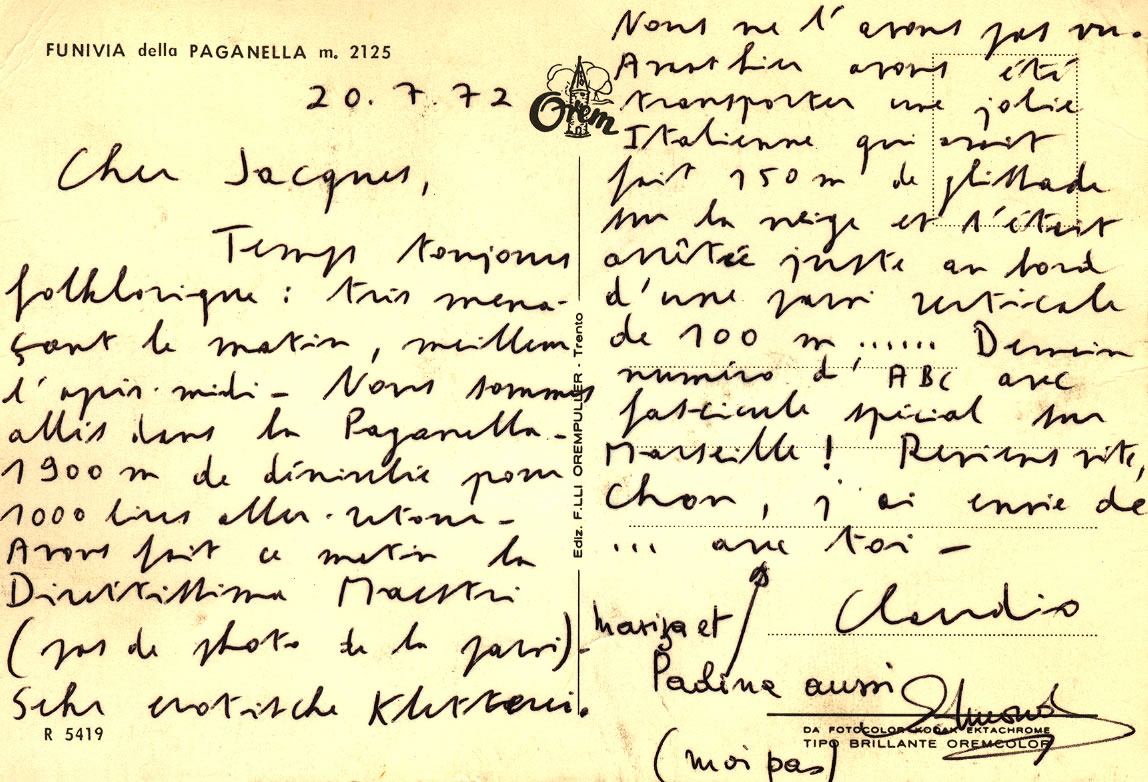 FUNIVIA della PAGANELLA m. 2125
20.7.72
Cher Jacques,
Temps toujours
folklorique : très mena-
çant le matin, meilleur
l'après-midi - Nous sommes
allés dans la Paganella -
1900 m de dénivelée pour
1000 lires aller-retour -
Avons fait ce matin la
Direttissima Maestri
(pas de photo de la paroi) -
Sehr erotische Kletterei.
R 5419
Orem
Ediz. F.LLI OREMPULLER - Trento
Nous ne l'avons pas vu.
Avant hier avons été
transporter une jolie
Italienne qui avait
fait 150 m de glissade
sur la neige et s'était
arrêtée juste au bord
d'une paroi verticale
de 100 m ...... Demain
numéro d'ABC avec
fascicule spécial sur
Marseille ! Reviens vite,
Chou, j'ai envie de
... avec toi -
Claudio
Mariza et
Padine aussi
(moi pas)
DA FOTOCOLOR KODAK EKTACHROME
TIPO BRILLANTE OREMCOLOR